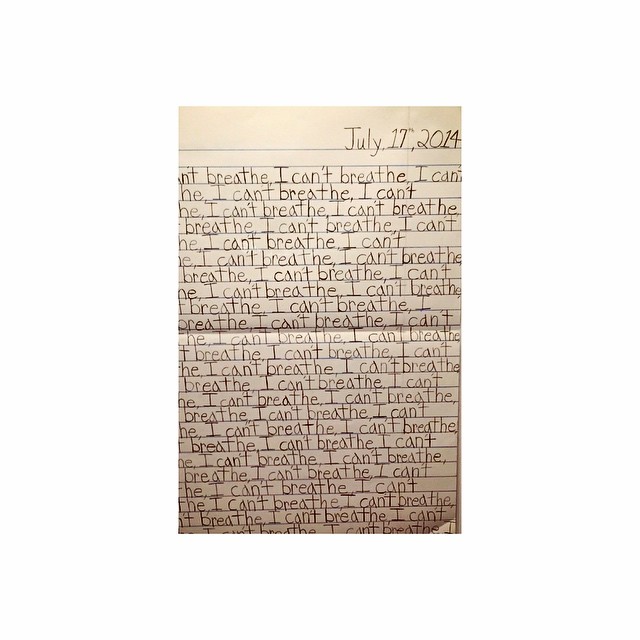 July, 17th, 2014
n't breathe, I can't breathe, I can't
he, I can't breathe, I can't
he, I can't breathe, I can't breathe,
breathe, I can't breathe, I can't
he, I can't breathe, I can't
e, I can't breathe, I can't breathe,
breathe, I can't breathe, I can't
he, I can't breathe, I can't breathe,
t breathe, I can't breathe, I
breathe, I can't breathe, I can't
he, I can't breathe, I can't breathe
t breathe, I can't breathe, I can't
he, I can't breathe, I can't breathe
breathe, I can't breathe, I can't
he, I can't breathe, I can't breathe,
breathe, I can't breathe, I can't
he, I can't breathe, I can't breathe,
t breathe, I can't breathe, I can't
e, I can't breathe, I can't breathe,
breathe, I can't breathe, I can't
he, I can't breathe, I can't
he, I can't breathe, I can't breathe,
't breathe, I can't breathe, I can't
breathe, I can't breathe, I